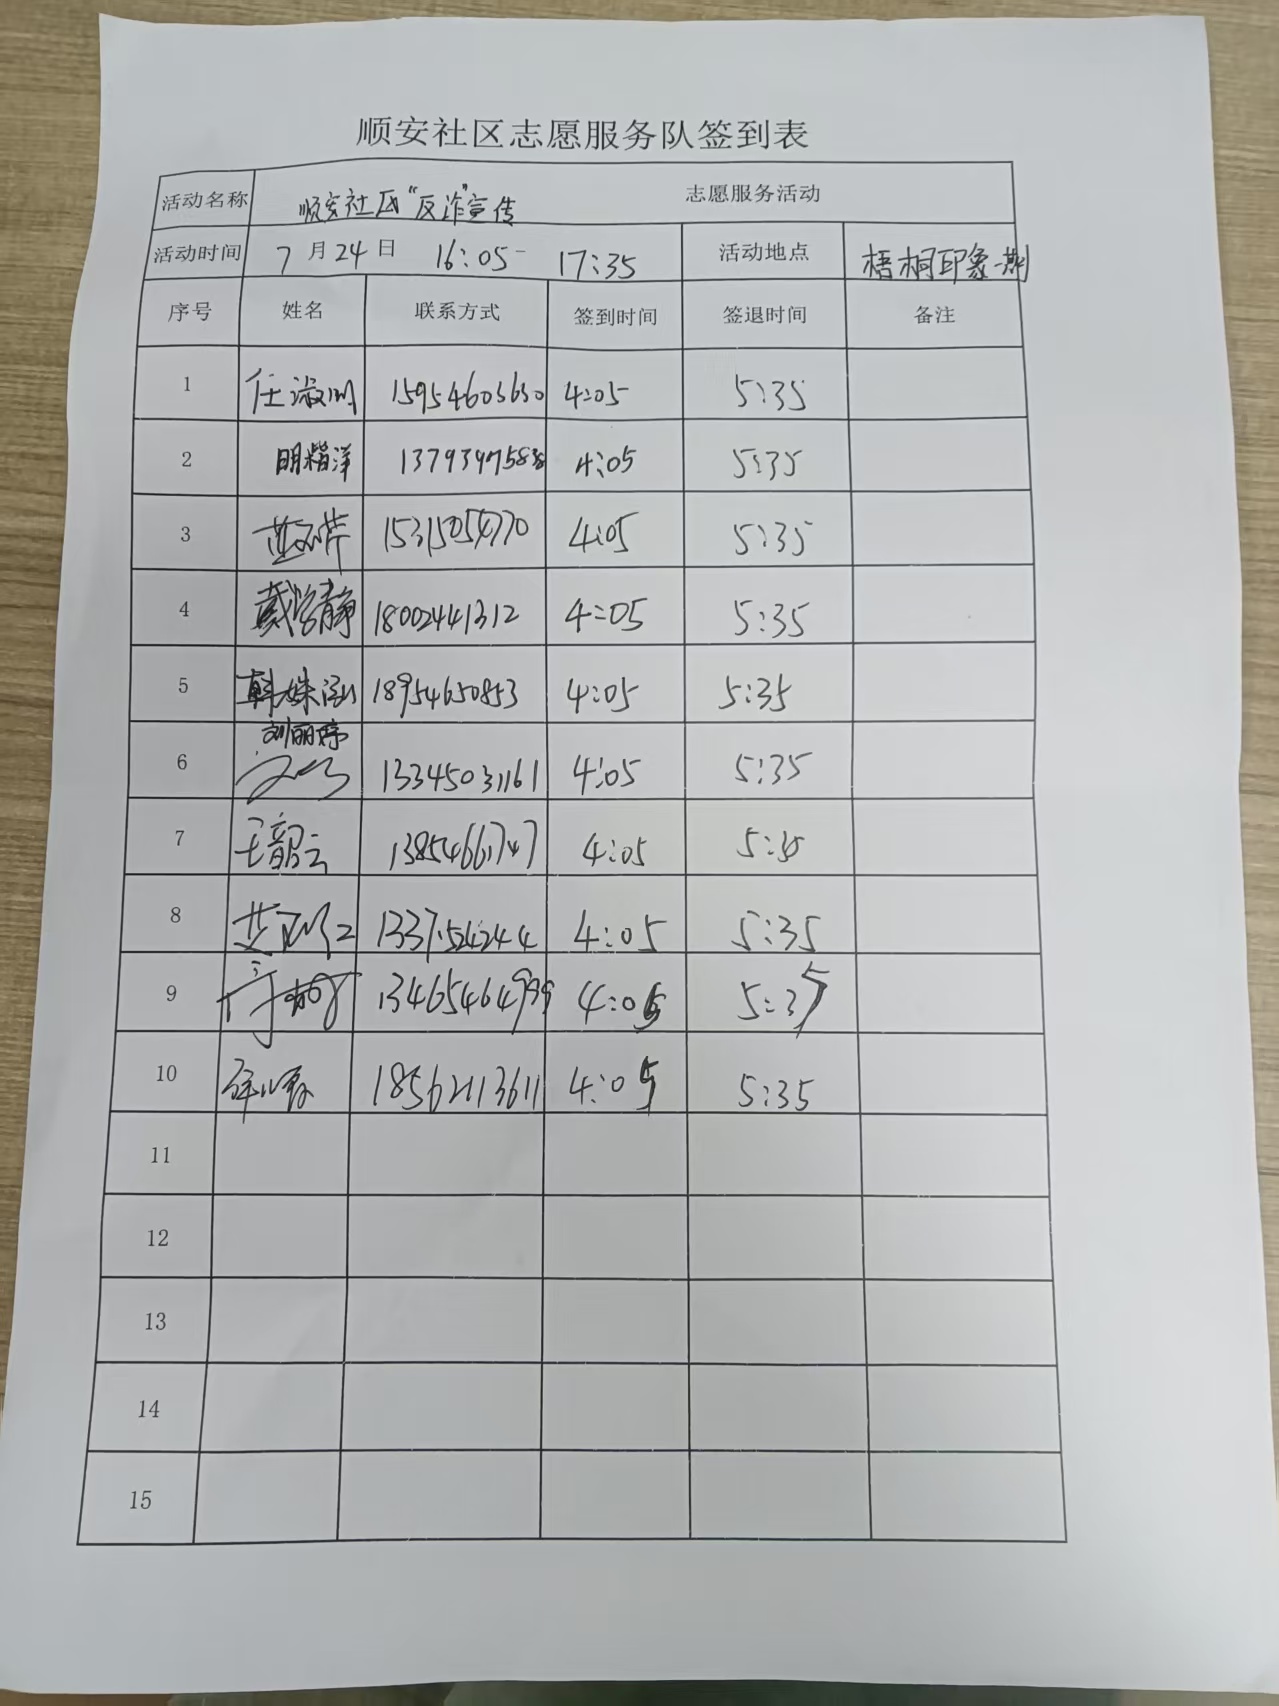 顺安社区志愿服务队签到表
活动名称 顺安社区“反诈”宣传 志愿服务活动
活动时间 7月24日 16:05-17:35 活动地点 梧桐印象一期
序号 姓名 联系方式 签到时间 签退时间 备注
1 任淑 15954603630 4:05 5:35
2 明 4:05 5:35
3 15315054770 4:05 5:35
4 戴 静 18002441312 4:05 5:35
5 韩姝泓 18954650853 4:05 5:35
刘丽婷
6 13345031161 4:05 5:35
7 王韶云 13854661747 4:05 5:35
8 13375242444 4:05 5:35
9 13465464999 4:05 5:35
10 18562113611 4:05 5:35
11
12
13
14
15